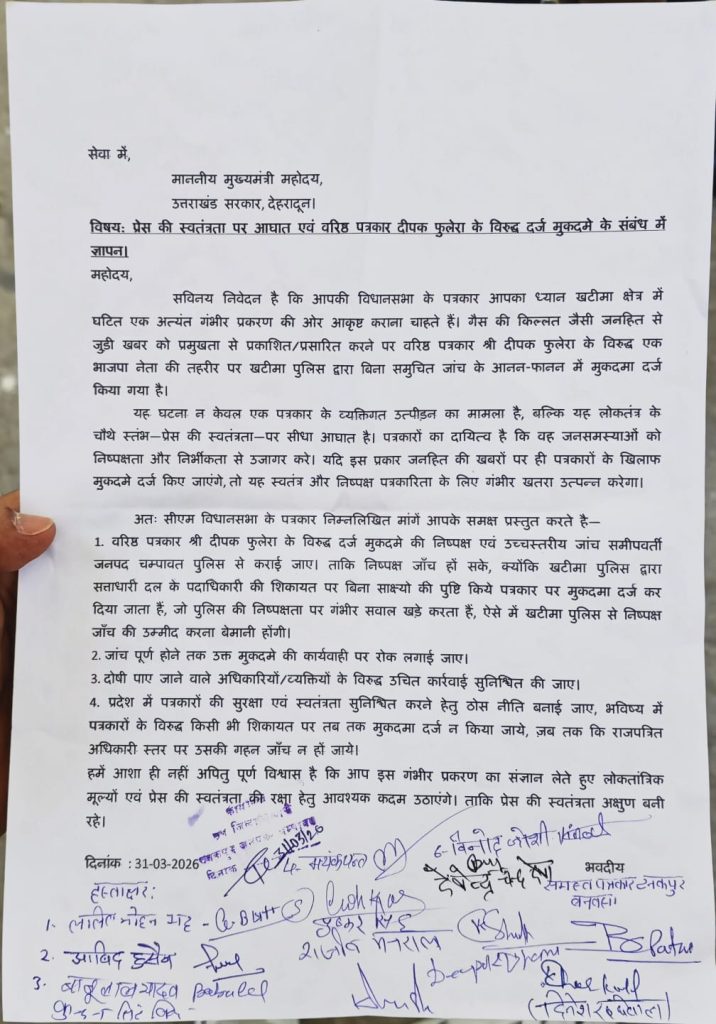 सेवा में,
माननीय मुख्यमंत्री महोदय,
उत्तराखंड सरकार, देहरादून।
विषय: प्रेस की स्वतंत्रता पर आघात एवं वरिष्ठ पत्रकार दीपक फुलेरा के विरुद्ध दर्ज मुकदमे के संबंध में
ज्ञापन।
महोदय,
सविनय निवेदन है कि आपकी विधानसभा के पत्रकार आपका ध्यान खटीमा क्षेत्र में
घटित एक अत्यंत गंभीर प्रकरण की ओर आकृष्ट कराना चाहते हैं। गैस की किल्लत जैसी जनहित से
जुड़ी खबर को प्रमुखता से प्रकाशित/प्रसारित करने पर वरिष्ठ पत्रकार श्री दीपक फुलेरा के विरुद्ध एक
भाजपा नेता की तहरीर पर खटीमा पुलिस द्वारा बिना समुचित जांच के आनन-फानन में मुकदमा दर्ज
किया गया है।
यह घटना न केवल एक पत्रकार के व्यक्तिगत उत्पीड़न का मामला है, बल्कि यह लोकतंत्र के
चौथे स्तंभ—प्रेस की स्वतंत्रता—पर सीधा आघात है। पत्रकारों का दायित्व है कि वह जनसमस्याओं को
निष्पक्षता और निर्भीकता से उजागर करे। यदि इस प्रकार जनहित की खबरों पर ही पत्रकारों के खिलाफ
मुकदमे दर्ज किए जाएंगे, तो यह स्वतंत्र और निष्पक्ष पत्रकारिता के लिए गंभीर खतरा उत्पन्न करेगा।
अतः सीएम विधानसभा के पत्रकार निम्नलिखित मांगें आपके समक्ष प्रस्तुत करते है—
1. वरिष्ठ पत्रकार श्री दीपक फुलेरा के विरुद्ध दर्ज मुकदमे की निष्पक्ष एवं उच्चस्तरीय जांच समीपवर्ती
जनपद चम्पावत पुलिस से कराई जाए। ताकि निष्पक्ष जाँच हों सके, क्योंकि खटीमा पुलिस द्वारा
सत्ताधारी दल के पदाधिकारी की शिकायत पर बिना साक्ष्यो की पुष्टि किये पत्रकार पर मुकदमा दर्ज कर
दिया जाता हैं, जो पुलिस की निष्पक्षता पर गंभीर सवाल खड़े करता हैं, ऐसे में खटीमा पुलिस से निष्पक्ष
जाँच की उम्मीद करना बेमानी होंगी।
2. जांच पूर्ण होने तक उक्त मुकदमे की कार्यवाही पर रोक लगाई जाए।
3. दोषी पाए जाने वाले अधिकारियों/व्यक्तियों के विरुद्ध उचित कार्रवाई सुनिश्चित की जाए।
4. प्रदेश में पत्रकारों की सुरक्षा एवं स्वतंत्रता सुनिश्चित करने हेतु ठोस नीति बनाई जाए, भविष्य में
पत्रकारों के विरुद्ध किसी भी शिकायत पर तब तक मुकदमा दर्ज न किया जाये, ज़ब तक कि राजपत्रित
अधिकारी स्तर पर उसकी गहन जाँच न हों जाये।
हमें आशा ही नहीं अपितु पूर्ण विश्वास है कि आप इस गंभीर प्रकरण का संज्ञान लेते हुए लोकतांत्रिक
मूल्यों एवं प्रेस की स्वतंत्रता की रक्षा हेतु आवश्यक कदम उठाएंगे। ताकि प्रेस की स्वतंत्रता अक्षुण बनी
रहे।
दिनांक 31/03/26
6- विनोद जोशी
दिनांक : 31-03-2026
भवदीय
समस्त पत्रकार टनकपुर
बनबसा
हस्ताक्षर:
1- ललित मोहन भट्ट -
2. आबिद हुसैन
3. बाबूलाल यादव Babulal